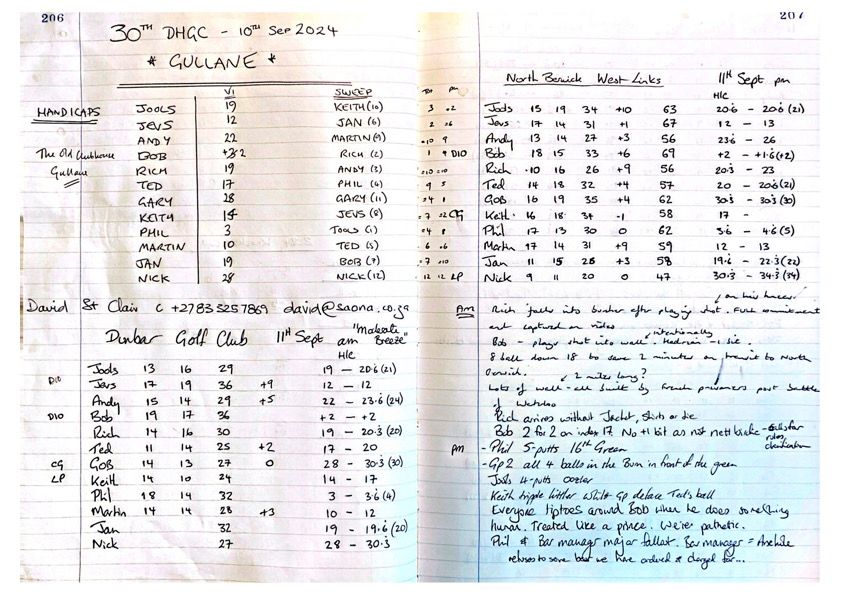 206
30TH DHGC - 10TH Sep 2024
* GULLANE *
VI SWEEP
HANDICAPS JOOLS 19 KEITH (10)
JEVS 12 JAN (6)
ANDY 22 MARTIN (9)
The Old Clubhouse BOB +2 RICH (2)
Gullane RICH 19 ANDY (3)
TED 17 PHIL (4)
GARY 28 GARY (11)
KEITH 14 JEVS (8)
PHIL 3 (1)
MARTIN 10 TED (5)
JAN 19 BOB (7)
NICK 28 NICK (12)
David St Clair C +27835257869 david@saona.co.za
Dunbar Golf Club 11th Sept am "Breeze"
Hle
Jools 13 16 29 19 - 20.6 (21)
D10 Jevs 17 19 36 +9 12 - 12
Andy 15 14 29 +5 22 - 23.6 (24)
D10 Bob 19 17 36 +2 - +2
Rich 14 16 30 19 - 20.3 (20)
Ted 11 14 25 +2 17 - 20
CG Gob 14 13 27 0 28 - 30.3 (30)
LP Keith 14 10 24 14 - 17
Phil 18 14 32 3 - 3.6 (4)
Martin 14 14 28 +3 10 - 12
Jan 32 19 - 19.6 (20)
Nick 27 28 - 30.3
207
North Berwick West Links 11th Sept pm
Hle
Jools 15 19 34 +10 63 20.6 - 20.6 (21)
Jevs 17 14 31 +1 67 12 - 13
Andy 13 14 27 +3 56 23.6 - 26
D10 Bob 18 15 33 +6 69 +2 - +1.6 (+2)
Rich 10 16 26 +9 56 20.3 - 23
Ted 14 18 32 +4 57 20 - 20.6 (21)
Gob 16 19 35 +4 62 30.3 - 30.3 (30)
CG Keith 16 18 34 -1 58 17 -
Phil 17 13 30 0 62 3.6 - 4.6 (5)
Martin 17 14 31 +9 59 12 - 13
Jan 11 15 26 +3 58 19.6 - 22.3 (22)
LP Nick 9 11 20 0 47 30.3 - 34.3 (34)
on his knees
AM Rich falls into bunker after playing shot. Full commitment
and captured on video
intentionally
Bob - plays shot into wall.
8 ball down 18 to save 2 minutes on transit to North
Berwick.
2 miles long?
Lots of wall - all built by French prisoners post battle
of Waterloo
Rich arrives without Jacket, shirts or die
Bob 2 for 2 on index 17. No +1 bit as not nett birdie - calls for rules clarification
PM - Phil 5-putts 16th Green
- Gp 2 all 4 balls in the Burn in front of the green
Jools 4-putts
Keith whilst Gp deface Ted's ball
Everyone tiptoes around Bob when he does something
human. Treated like a prince. We're pathetic.
Phil & Bar manager major fallout. Bar manager = Arsehole
refuses to serve beer we have ordered & charged for...